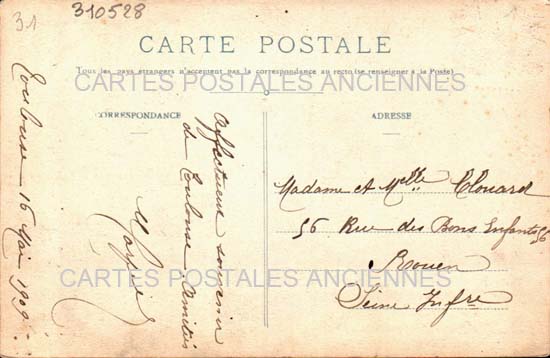 31
310528
CARTE POSTALE
Tous les pays étrangers n'acceptent pas la correspondance au recto (se renseigner à la Poste)
CARTES POSTALES ANCIENNES
CORRESPONDANCE
ADRESSE
Toulouse 16 Mai 1909
Affectueux souvenir
de Toulouse Amitiés
Madame et Melle Clouard
56 Rue des Bons Enfants 56
Rouen
Seine Infre
CARTES POSTALES ANCIENNES